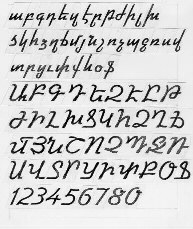 աբգդեզէըթժիլխ
ծկհձղճմյնշոչպջռսվ
տրցւփքևօֆ
ԱԲԳԴԵԶԷԸԹ
ԺԻԼԽԾԿՀՁՂՃ
ՄՅՆՇՈՉՊՋՌ
ՍՎՏՐՑՒՓՔՕՖ
1234567890